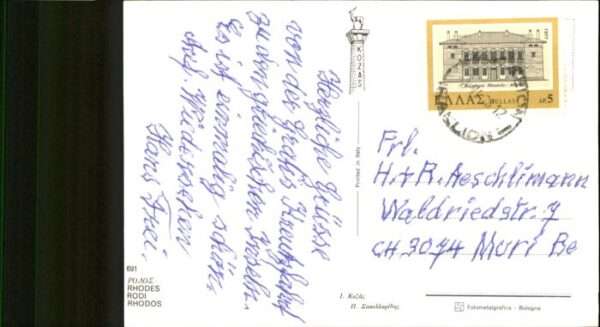 Herzliche Grüsse
von der Gratis Kreuzfahrt
zu den griechischen Inseln.
Es ist einmalig schön.
Auf Wiedersehen
Hans Frei.
KOZAS
Printed in Italy
ΕΛΛΑΣ HELLAS ΔΡ. 5
Frl.
H + R. Aeschlimann
Waldriedstr. 7
CH 3074 Muri Be
691
ΡΟΔΟΣ
RHODES
RODI
RHODOS
Ι. Κοζάς
Fotometalgrafica - Bologna